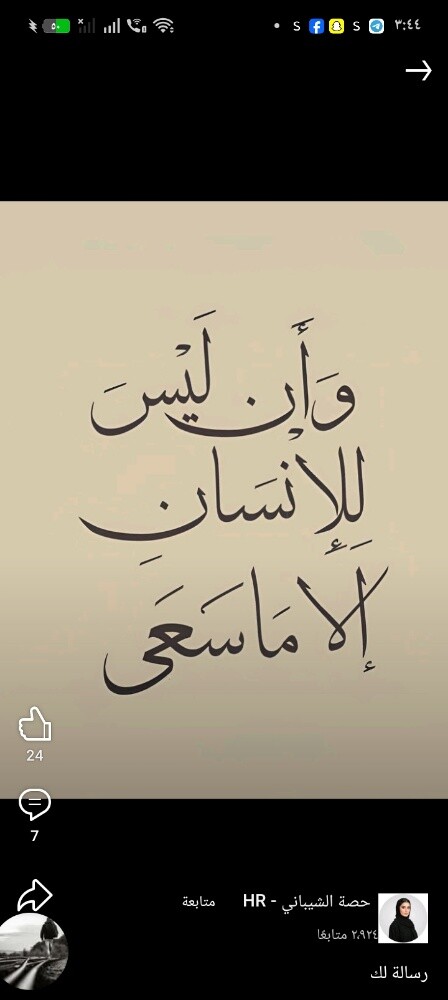 ٣:٤٤
S
S
٥٠
وَأَن لَيْسَ
لِلْإِنْسَانِ
إِلَّا مَا سَعَى
24
7
حصة الشيباني - HR متابعة
٢،٩٢٤ متابعًا
رسالة لك